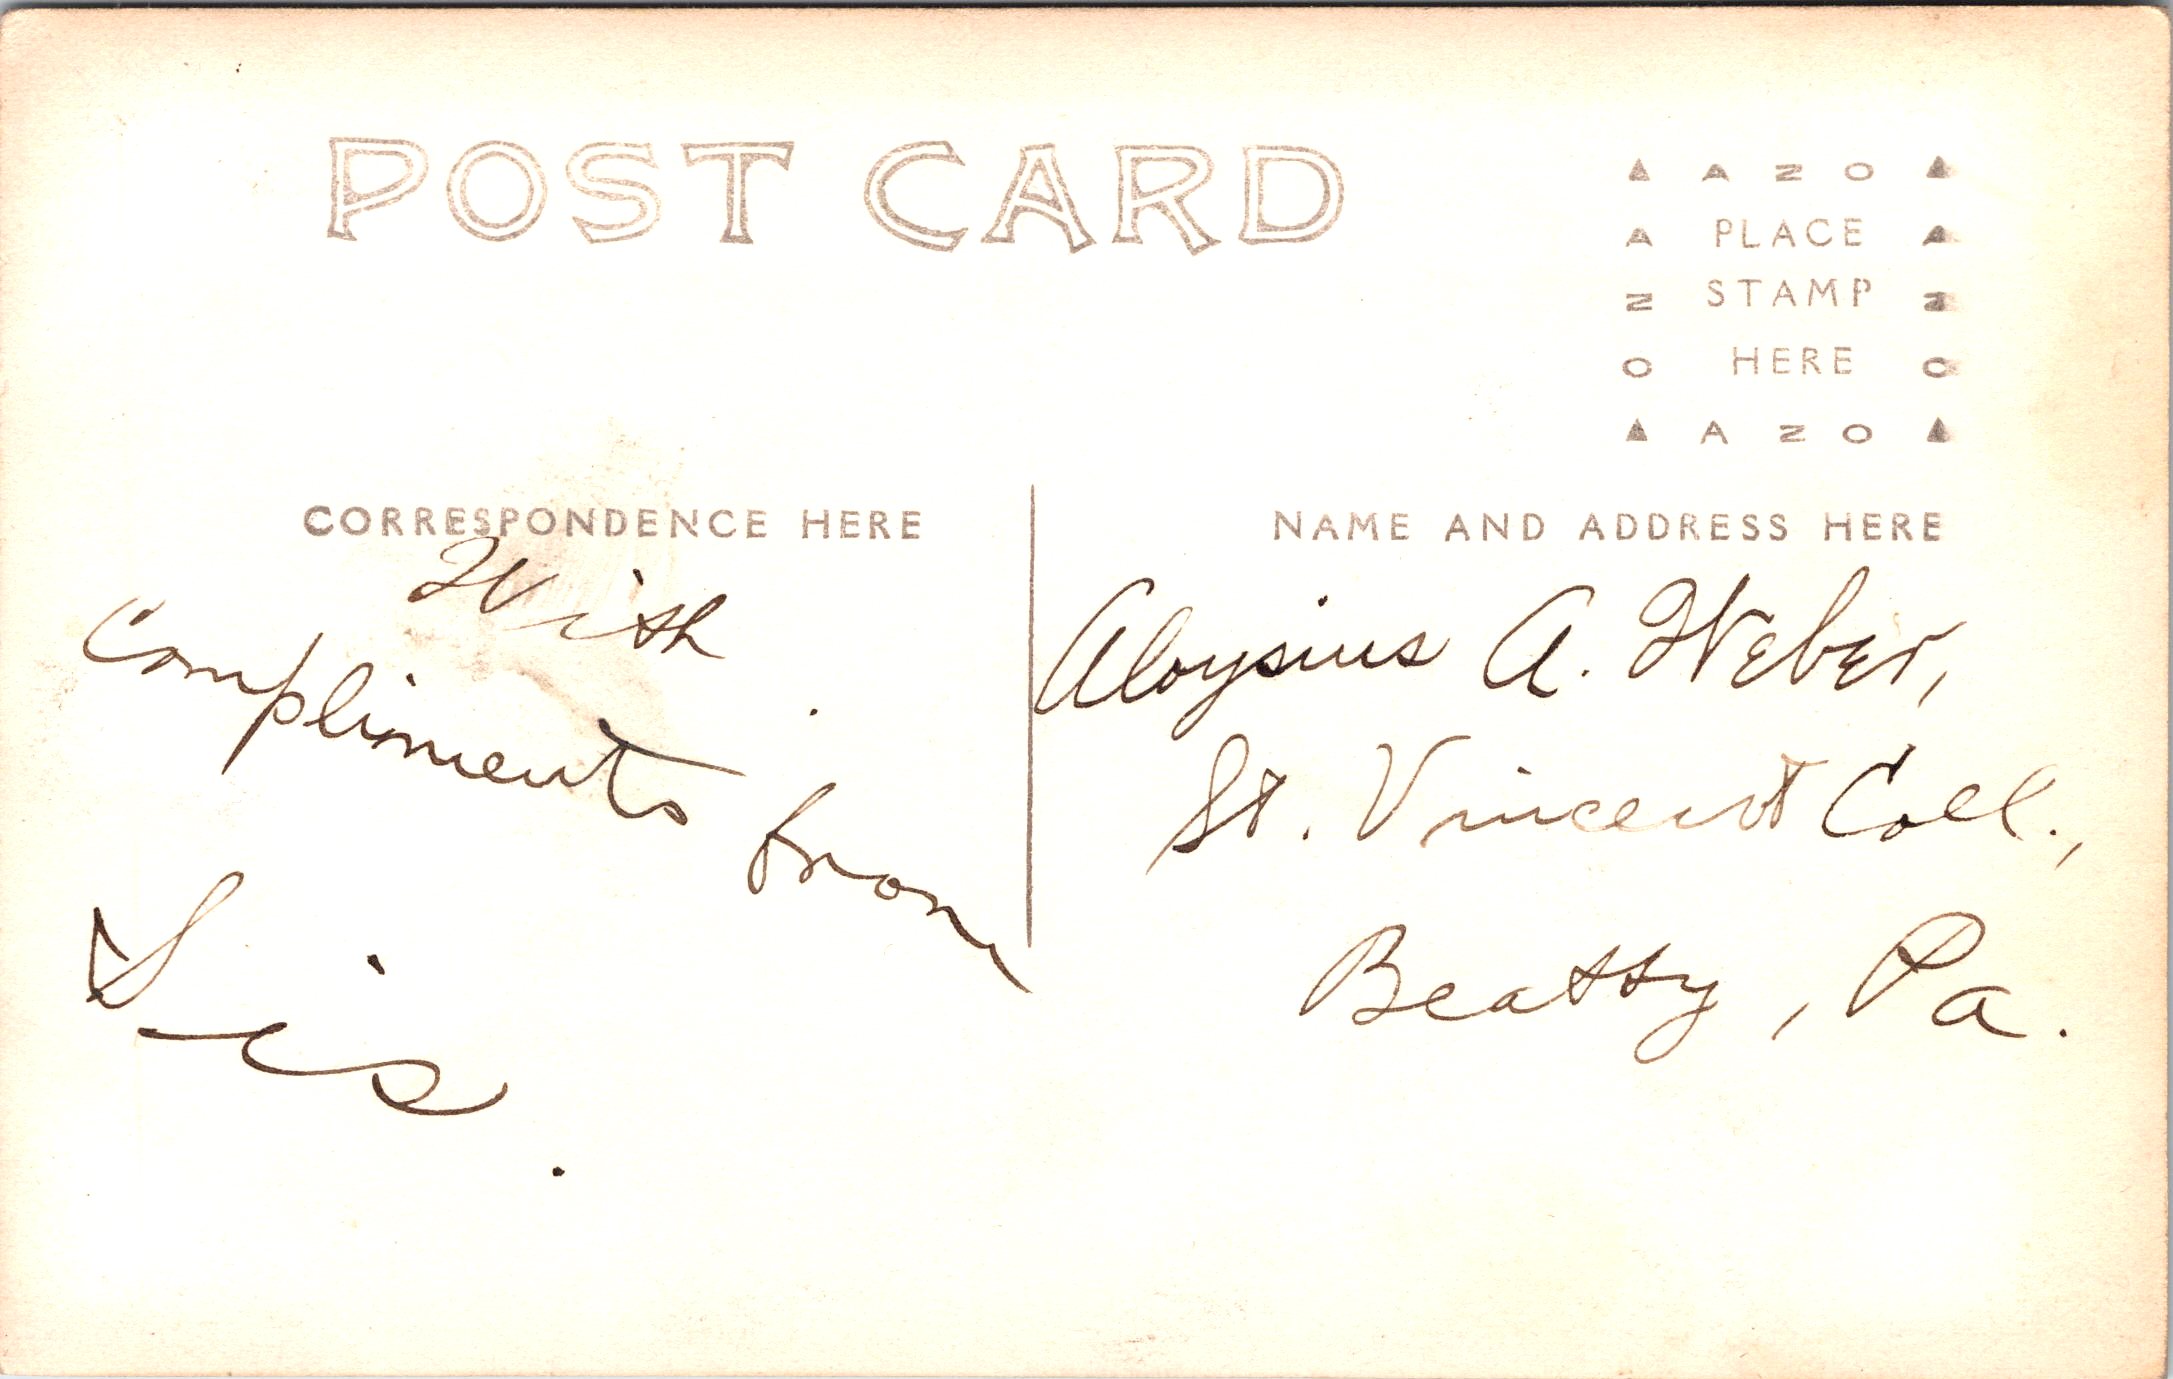 POST CARD
AZO
A PLACE A
Z STAMP Z
O HERE O
AZO
CORRESPONDENCE HERE
With
Compliments from
Sis.
NAME AND ADDRESS HERE
Aloysius A. Weber,
St. Vincent Coll.,
Beatty, Pa.